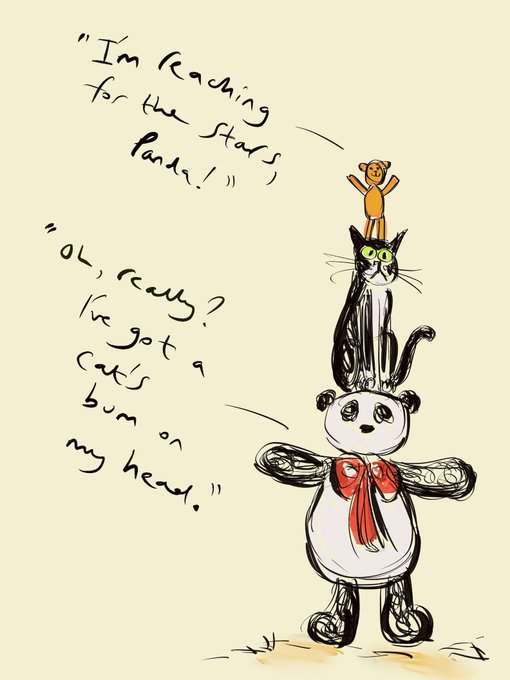 "I'm reaching
for the stars,
Panda!"
"Oh, really?
I've got a
cat's
bum on
my head."